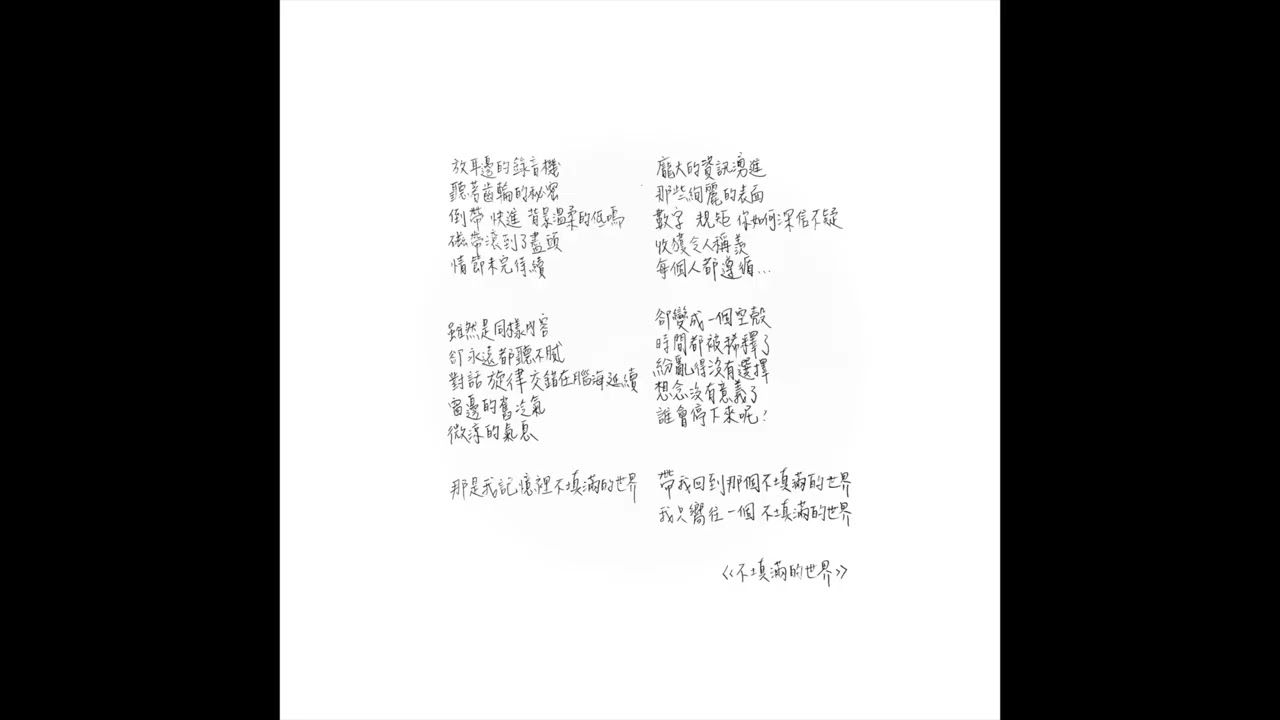 放耳邊的錄音機
聽著齒輪的秘密
倒帶 快進 背景溫柔的低鳴
磁帶滾到了盡頭
情節未完待續
雖然是同樣內容
卻永遠都聽不膩
對話 旋律 交錯在腦海延續
窗邊的舊冷氣
微涼的氣息
那是我記憶裡不填滿的世界
龐大的資訊湧進
那些絢麗的表面
數字 規矩 你如何深信不疑
收穫令人稱羨
每個人都遵循...
卻變成一個空殼
時間都被稀釋了
紛亂得沒有選擇
想念沒有意義了
誰會停下來呢?
帶我回到那個不填滿的世界
我只嚮往一個 不填滿的世界
《不填滿的世界》